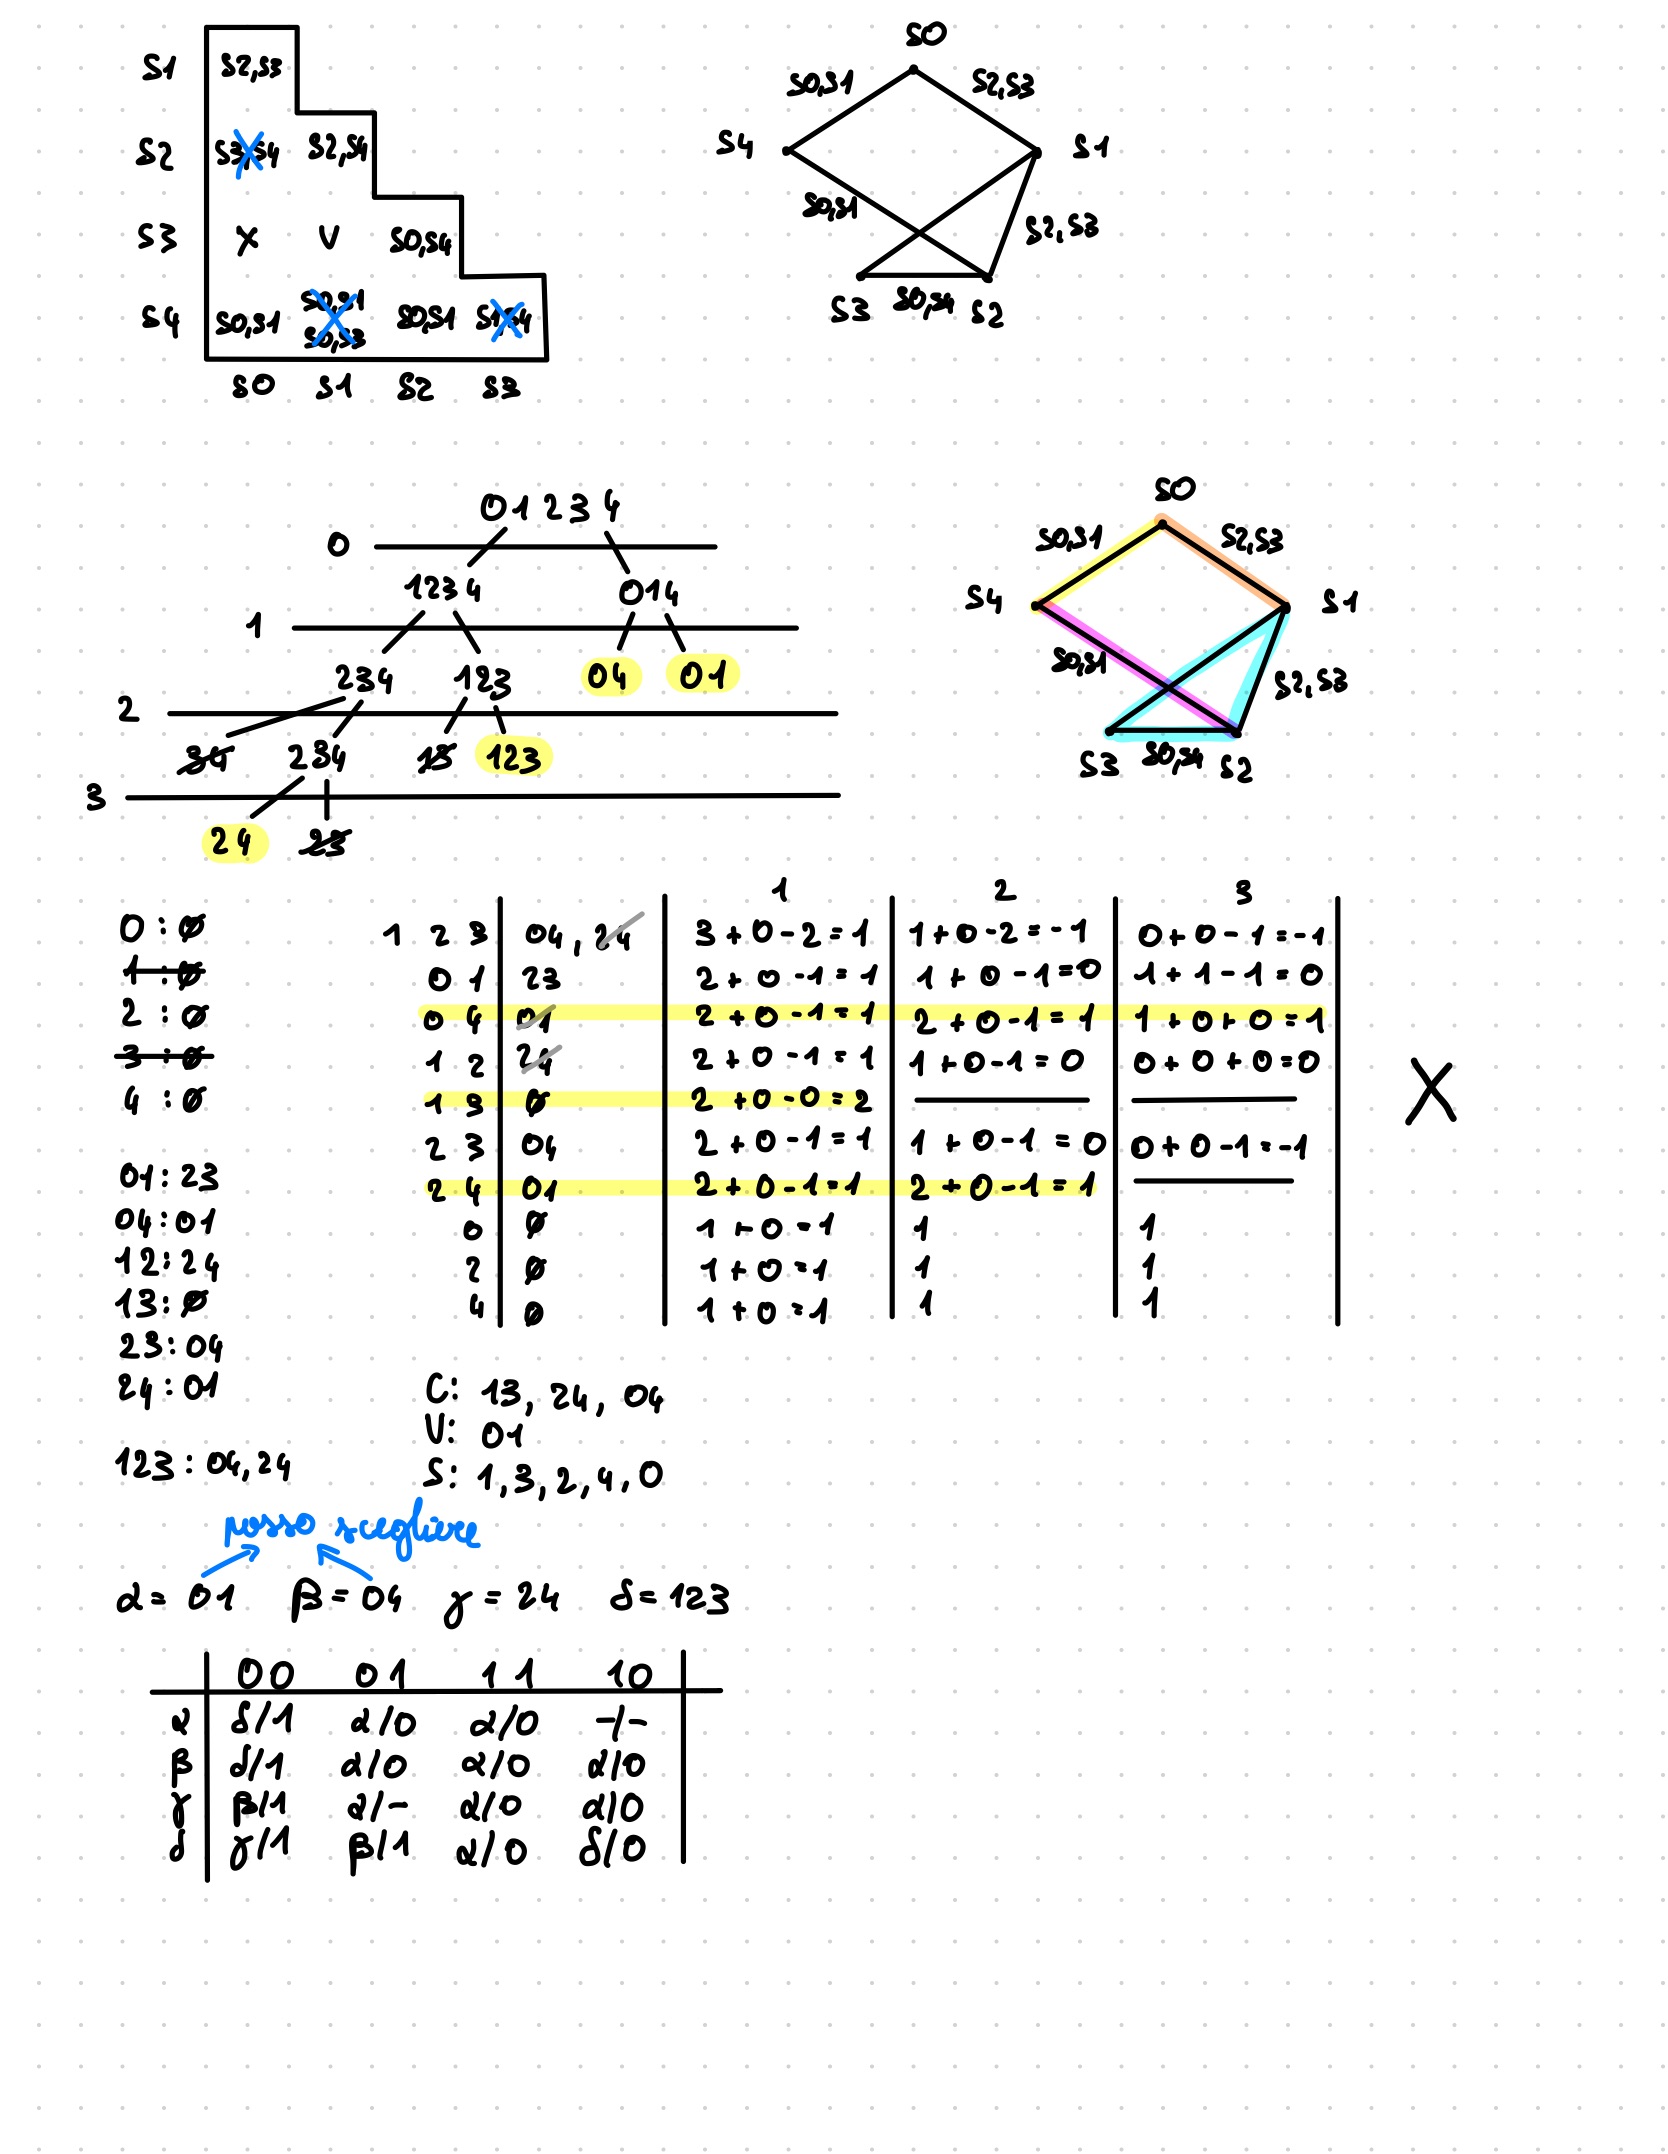 S1 S2,S3
S2 S3,S4 S2,S4
S3 X V S0,S4
S4 S0,S1 S0,S1 S0,S3 S0,S1 S1,S4
S0 S1 S2 S3
S0
S0,S1 S2,S3
S4 S1
S0,S1 S2,S3
S3 S0,S4 S2
0 1 2 3 4
0
1234 014
1
234 123 04 01
2
34 234 13 123
3
24 23
S0
S0,S1 S2,S3
S4 S1
S0,S1 S2,S3
S3 S0,S4 S2
0 : ∅
1 : ∅
2 : ∅
3 : ∅
4 : ∅
01 : 23
04 : 01
12 : 24
13 : ∅
23 : 04
24 : 01
123 : 04, 24
1 2 3
1 2 3 04, 24 3+0-2=1 1+0-2=-1 0+0-1=-1
0 1 23 2+0-1=1 1+0-1=0 1+1-1=0
0 4 01 2+0-1=1 2+0-1=1 1+0+0=1
1 2 24 2+0-1=1 1+0-1=0 0+0+0=0
1 3 ∅ 2+0-0=2
2 3 04 2+0-1=1 1+0-1=0 0+0-1=-1
2 4 01 2+0-1=1 2+0-1=1
0 ∅ 1+0=1 1 1
2 ∅ 1+0=1 1 1
4 ∅ 1+0=1 1 1
X
C: 13, 24, 04
V: 01
S: 1, 3, 2, 4, 0
posso scegliere
α = 01 β = 04 γ = 24 δ = 123
00 01 11 10
α δ/1 α/0 α/0 -/-
β δ/1 α/0 α/0 α/0
γ β/1 α/- α/0 α/0
δ γ/1 β/1 α/0 δ/0